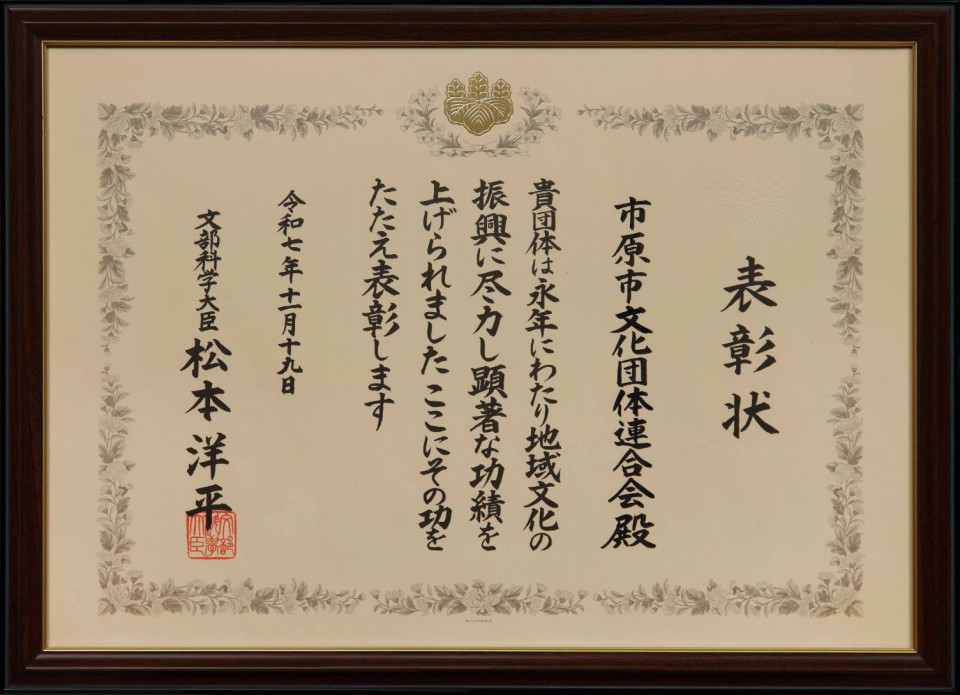 表彰状
市原市文化団体連合会殿
貴団体は永年にわたり地域文化の
振興に尽力し顕著な功績を
上げられました ここにその功を
たたえ表彰します
令和七年十一月十九日
文部科学大臣 松本洋平